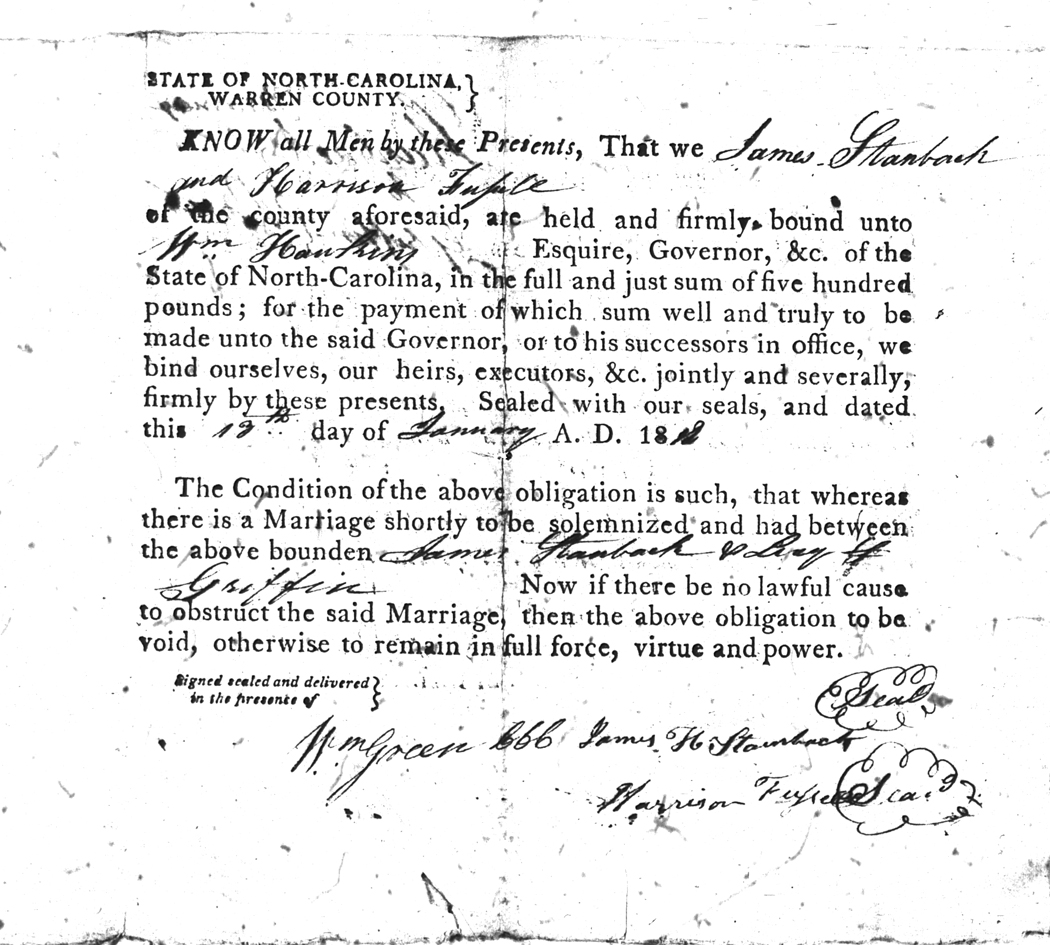 STATE OF NORTH-CAROLINA, }
WARREN COUNTY.
KNOW all Men by these Presents, That we James Stanback
and Harrison
of the county aforesaid, are held and firmly bound unto
Wm Hawkins Esquire, Governor, &c. of the
State of North-Carolina, in the full and just sum of five hundred
pounds; for the payment of which sum well and truly to be
made unto the said Governor, or to his successors in office, we
bind ourselves, our heirs, executors, &c. jointly and severally,
firmly by these presents. Sealed with our seals, and dated
this day of January A. D. 18
The Condition of the above obligation is such, that whereas
there is a Marriage shortly to be solemnized and had between
the above bounden James Stanback &
Griffin Now if there be no lawful cause
to obstruct the said Marriage, then the above obligation to be
void, otherwise to remain in full force, virtue and power.
Signed sealed and delivered }
in the presence of
Seal
Wm Green CCC James H. Stanback
Harrison Seal